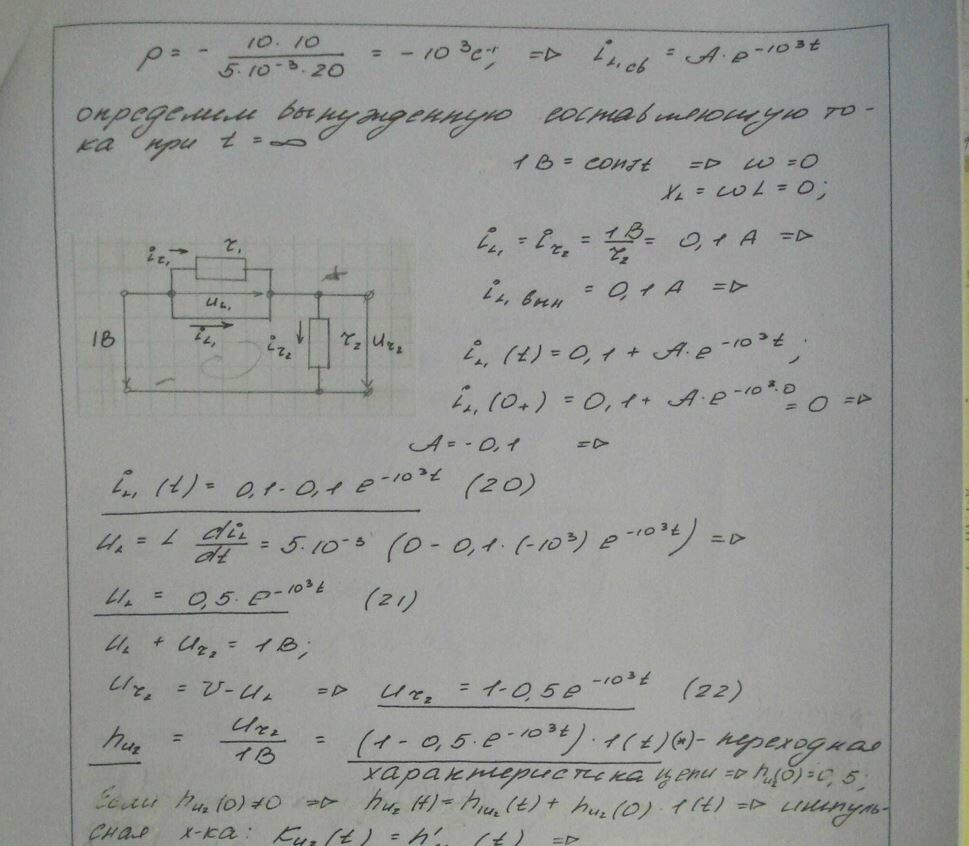 p = - 10·10 / 5·10⁻³·20 = - 10³ c⁻¹, => i_L1св = A·e^-10³t
определим вынужденную составляющую то-
ка при t = ∞
1В = const => ω = 0
X_L = ωL = 0;
i_L1 = i_r2 = 1В/r₂ = 0,1 А =>
i_L1 вын = 0,1 А =>
i_r1 r₁
u_L1
i_L1
1В i_r2 r₂ u_r2
i_L1 (t) = 0,1 + A·e^-10³t ;
i_L1 (0₊) = 0,1 + A·e^-10³·0 = 0 =>
A = -0,1 =>
i_L1 (t) = 0,1 - 0,1 e^-10³t (20)
u_L = L di_L/dt = 5·10⁻³ (0 - 0,1·(-10³) e^-10³t) =>
u_L = 0,5·e^-10³t (21)
u_L + u_r2 = 1В;
u_r2 = U - u_L => u_r2 = 1 - 0,5e^-10³t (22)
h_u2 = u_r2/1В = (1 - 0,5·e^-10³t)·1(t) (*) - переходная
характеристика цепи => h_u2(0) = 0,5;
Если h_u2(0) ≠ 0 => h_u2(t) = h_1u2(t) + h_u2(0)·1(t) => импуль-
сная х-ка: K_u2(t) = h' (t) =>